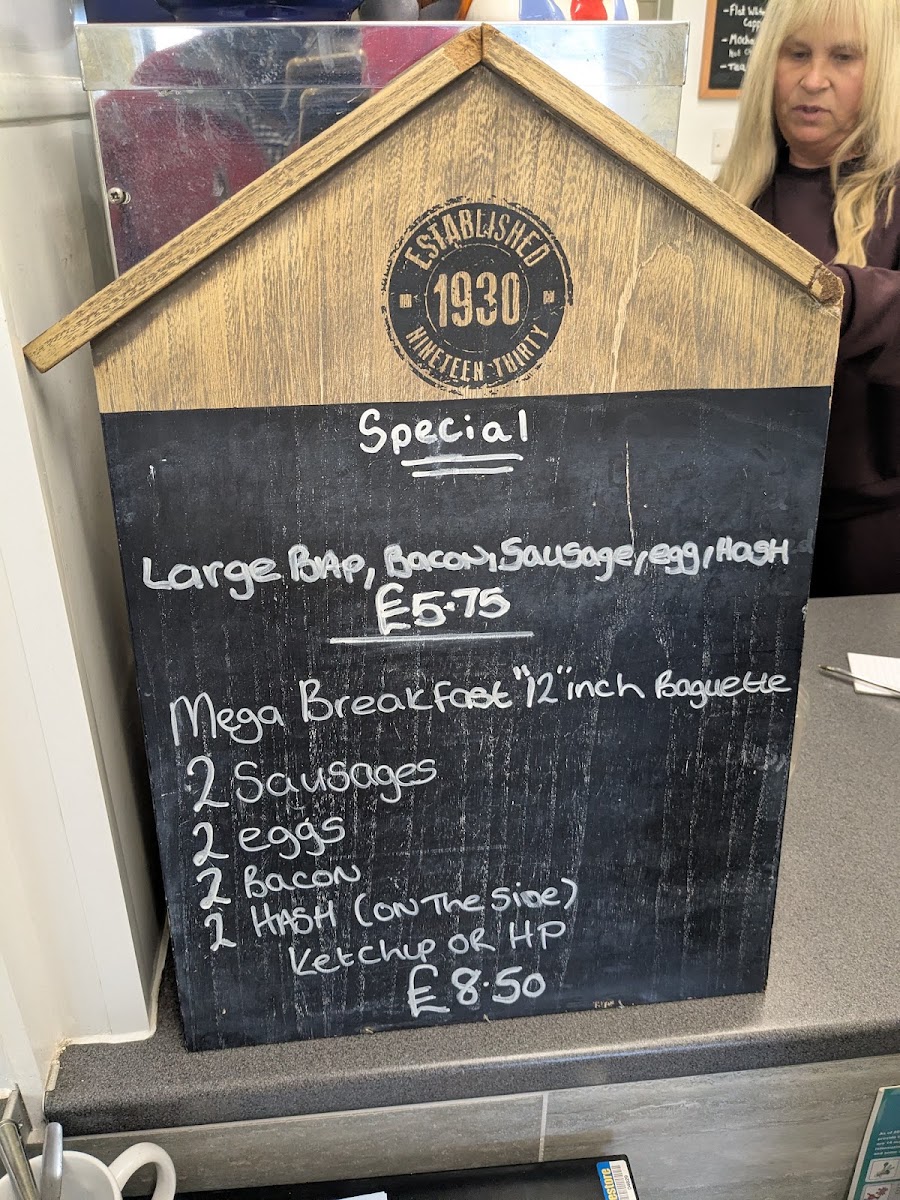 -Flat
- Mocha
- Tea
ESTABLISHED
1930
NINETEEN THIRTY
Special
Large BAP, BACON, Sausage, egg, HASH
£5.75
Mega Breakfast "12" inch Baguette
2 Sausages
2 eggs
2 Bacon
2 HASH (ON The Side)
Ketchup OR HP
£8.50
store